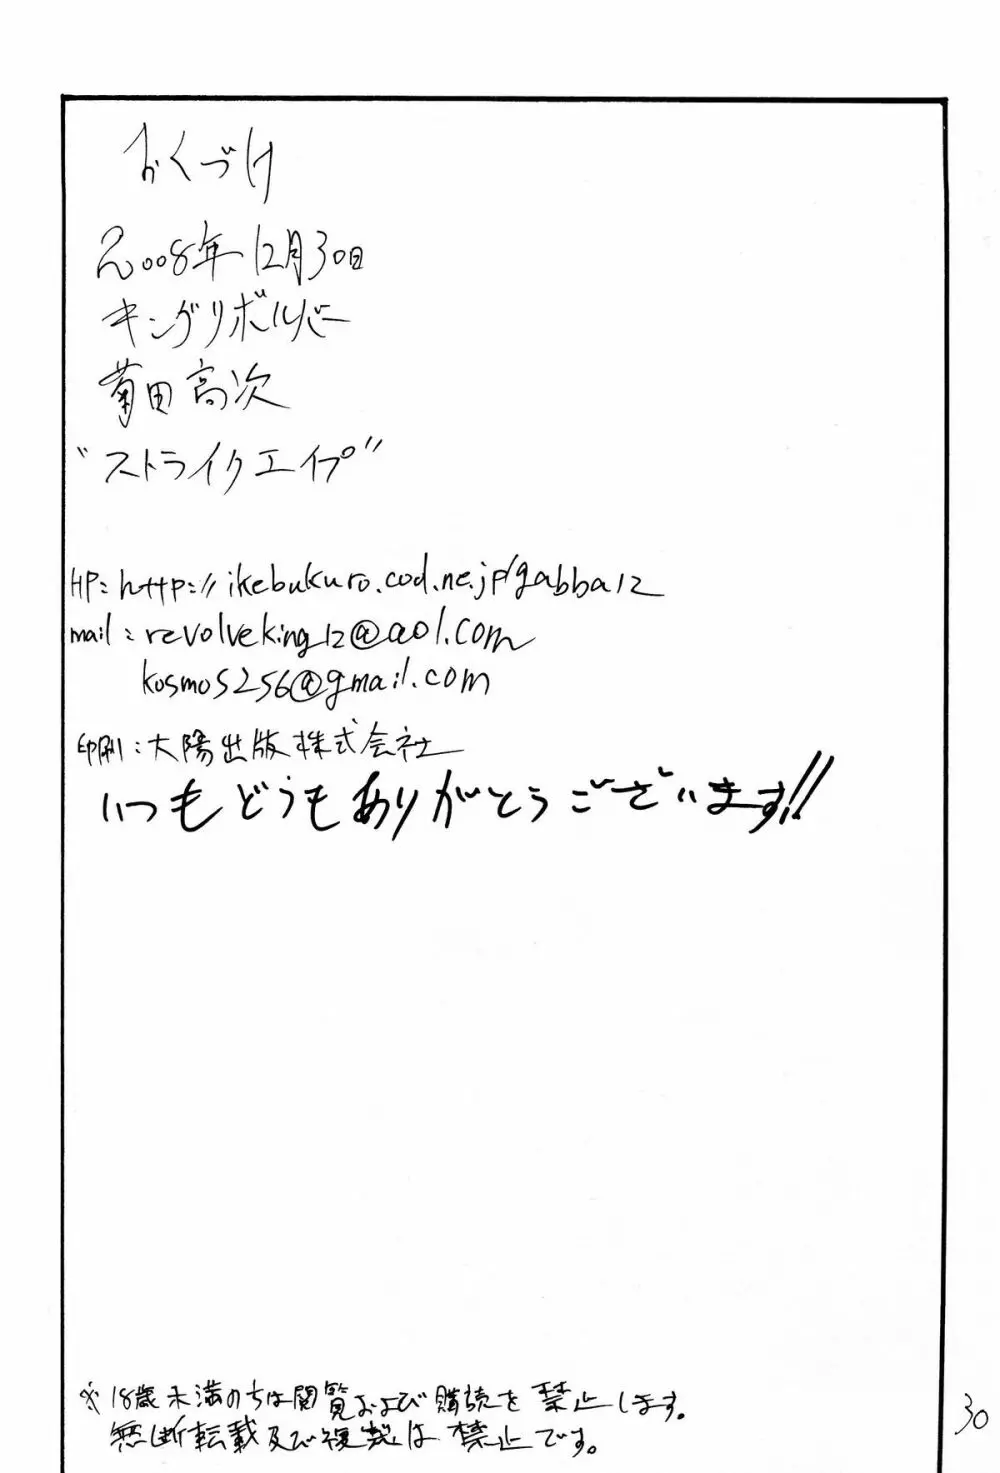 おくづけ
2008年12月30日
キングリボルバー
菊田高次
"ストライクエイプ"
HP:http://ikebukuro.cod.ne.jp/gabba12
mail:revolveking12@aol.com
kosmos256@gmail.com
印刷:大陽出版株式会社
いつもどうもありがとうございます!!
※18歳未満の方は閲覧および購読を禁止します。
無断転載及び複製は禁止です。
30